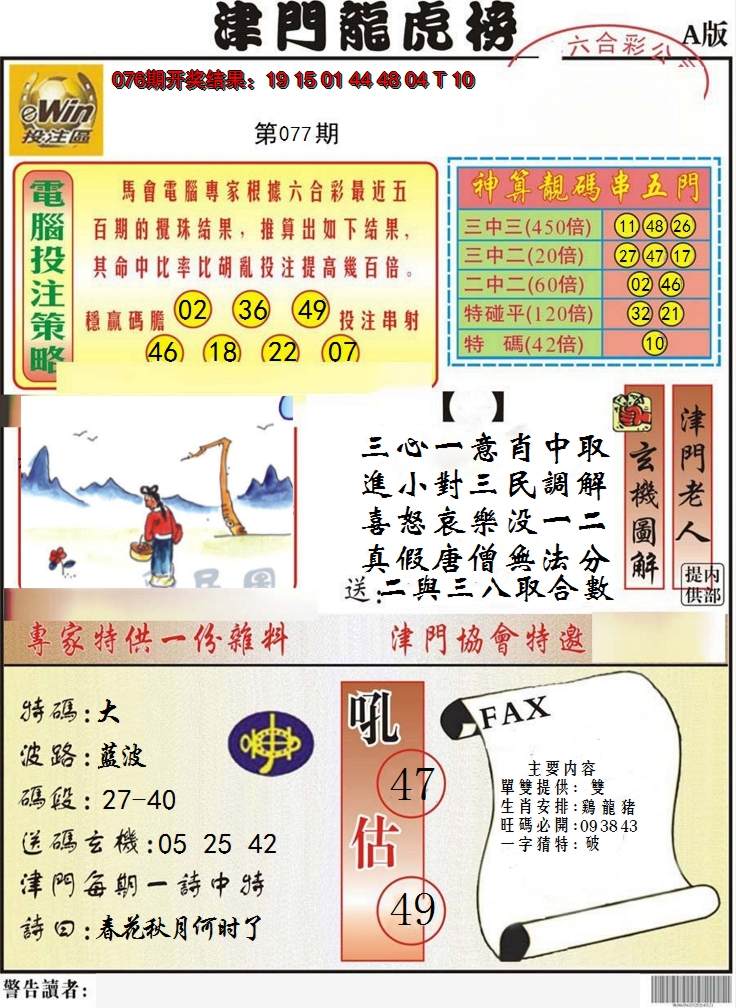 津門龍虎榜
A版
六合彩公
076期开奖结果：19 15 01 44 48 04 T 10
eWin
投注區
第077期
電腦投注策略
馬會電腦專家根據六合彩最近五
百期的攪珠结果，推算出如下结果，
其命中比率比胡亂投注提高幾百倍。
穩贏碼膽 02 36 49 投注串射
46 18 22 07
神算靚码串五門
三中三(450倍) 11 48 26
三中二(20倍) 27 47 17
二中二(60倍) 02 46
特碰平(120倍) 32 21
特 碼(42倍) 10
【 】
三心一意肖中取
進小對三民調解
喜怒哀樂没一二
真假唐僧無法分
送:二與三八取合數
玄機圖解
津門老人
内部提供
專家特供一份雜料
津門協會特邀
特碼:大
波路:藍波
碼段:27-40
送碼玄機:05 25 42
津門每期一詩中特
詩曰:春花秋月何时了
吼
47
估
49
FAX
主要内容
單雙提供: 雙
生肖安排:鷄龍豬
旺碼必開:09 38 43
一字猜特:破
警告讀者: